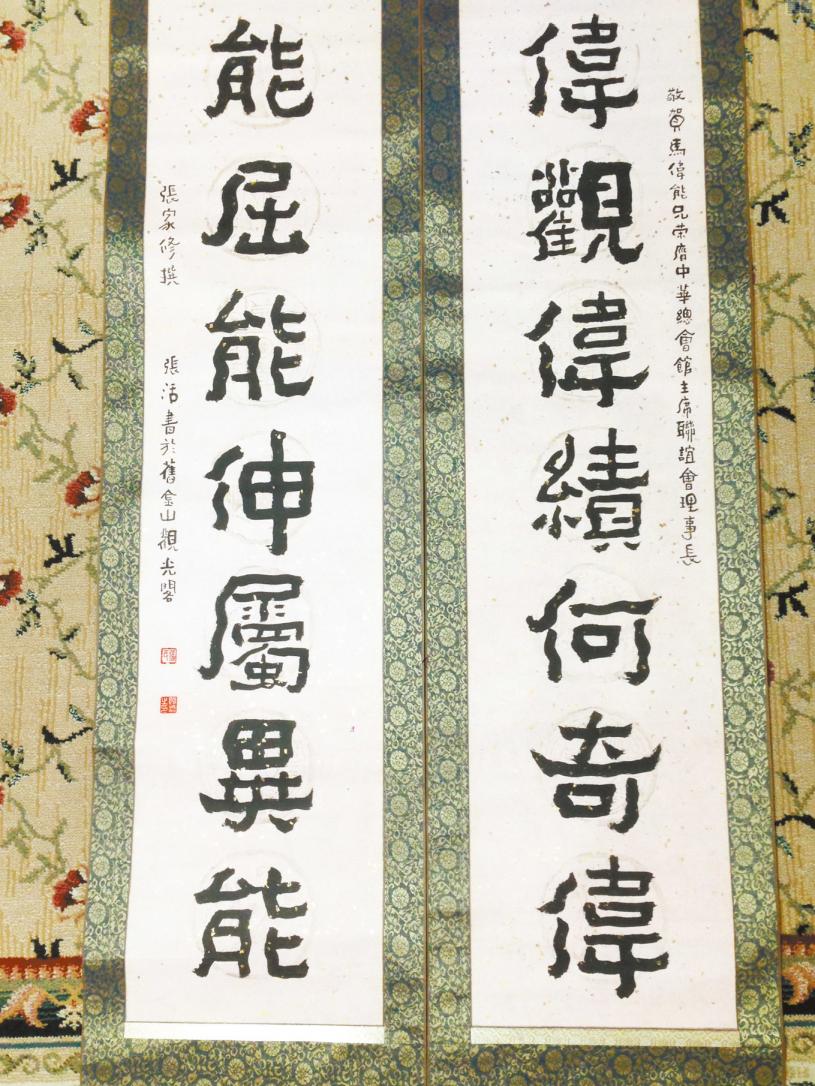 敬賀馬偉能兄荣膺中華總會館主席聯誼會理事長
偉觀偉績何奇偉
能屈能伸屬異能
張家修撰 張活書於舊金山觀光閣